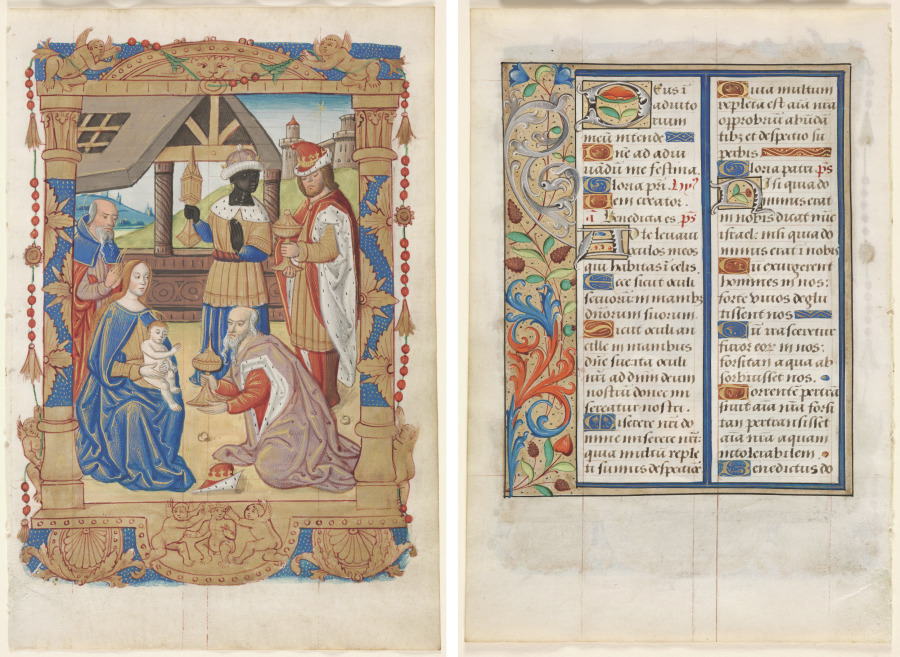 Deus ī
adiuto
rium
meū intende
Dne ad adiu
uādū me festina.
Gloria pri. Ym9
Ueni creator.
a Benedicta es ps
AD te leuaui
oculos meos
qui habitas ī celis.
Ecce sicut oculi
seruorum in manib9
dnorum suorum.
Sicut oculi an
cille in manibus
dne sue ita oculi
nri ad dnm deum
nostrū donec mi
sereatur nostri.
Miserere nri do
mine miserere nri:
quia multū reple
ti sumus despectiōe
Quia multum
repleta est aīa nra
opprobriū abūdā
tib9 et despectio su
perbis
Gloria patri ps
Nisi quia do
minus erat
in nobis dicat nūc
israel: nisi quia do
minus erat ī nobis
Cū exurgerent
hommes in nos:
forte viuos deglu
tissent nos
Cū irasceretur
furor eor in nos:
forsitan aqua ab
sorbuisset nos.
Torrentē pertrā
siuit aīa nra forsi
tan pertransisset
aīa nra aquam
intolerabilem.
Benedictus do